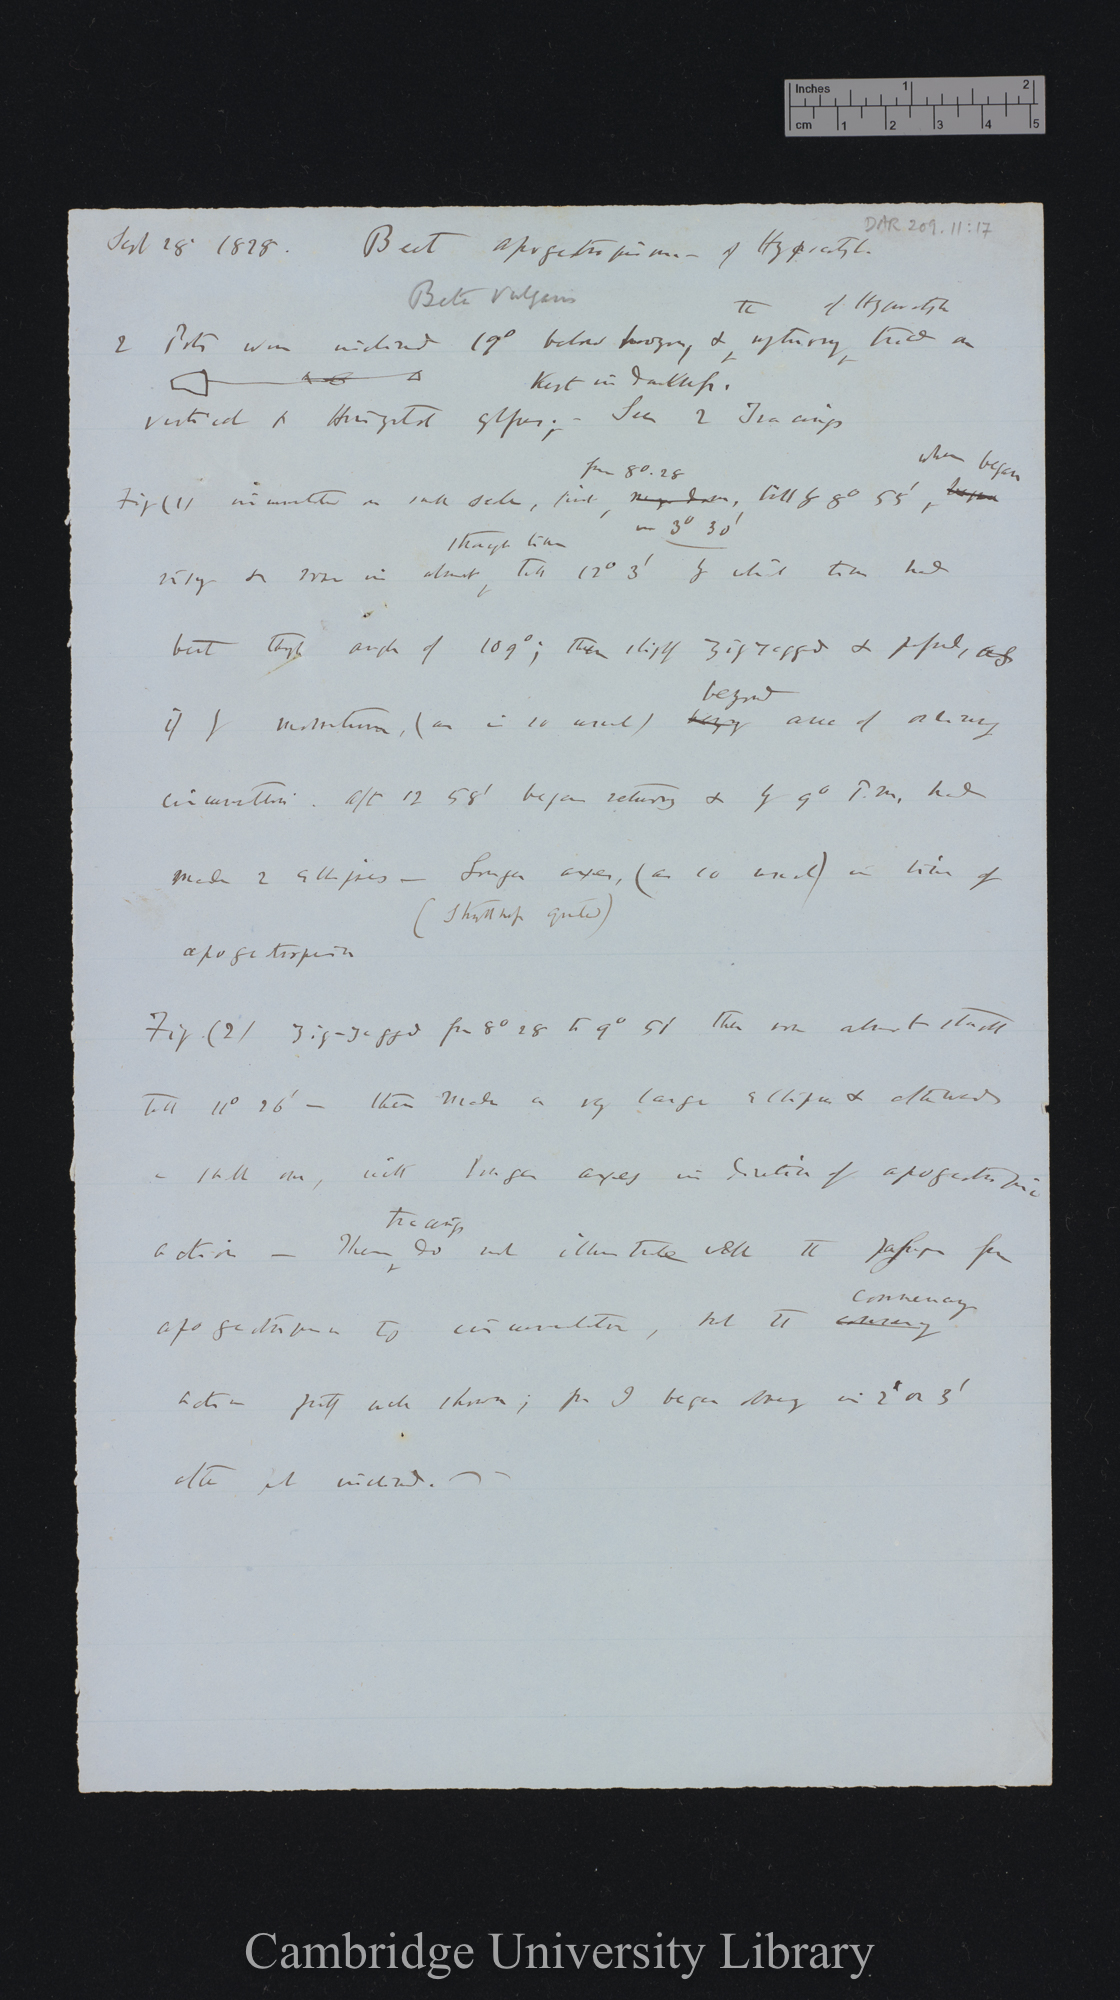 Inches 1 2
cm 1 2 3 4 5
DAR 209.11:17
Sept 28 1878. Beet apogeotropism — of Hypocotyl.
Beta vulgaris
the of Hypocotyl
2 Pots were inclined 19° below horizon, & upturning traced on
Kept in darkness.
vertical & Horizontal glasses; – See 2 Tracings
from 8°.28 when began
Fig (1) circumnutated on small scale, till by 8° 55', began
in 3° 30'
straight line
rising & rose in almost till 12° 3' by which time had
bent through angle of 109°; then slightly zigzagged & passed, as
beyond
if by momentum, (as is so usual) area of ordinary
circumnutation. After 12 58' began returning & by 9° P.M. had
made 2 ellipses — Longer axes, (as so usual) in line of
apogeotropism
Fig (2) zig-zagged from 8° 28 to 9° 51 then rose almost straight
till 11° 26' — then made a very large ellipse & afterwards
a small one, with longer axes in direction of apogeotropic
tracings
action — These do not illustrate well the passage from
apogeotropism to circumnutation, but the
action pretty well shown; for I began observing in 2' or 3'
after pot inclined.
Cambridge University Library